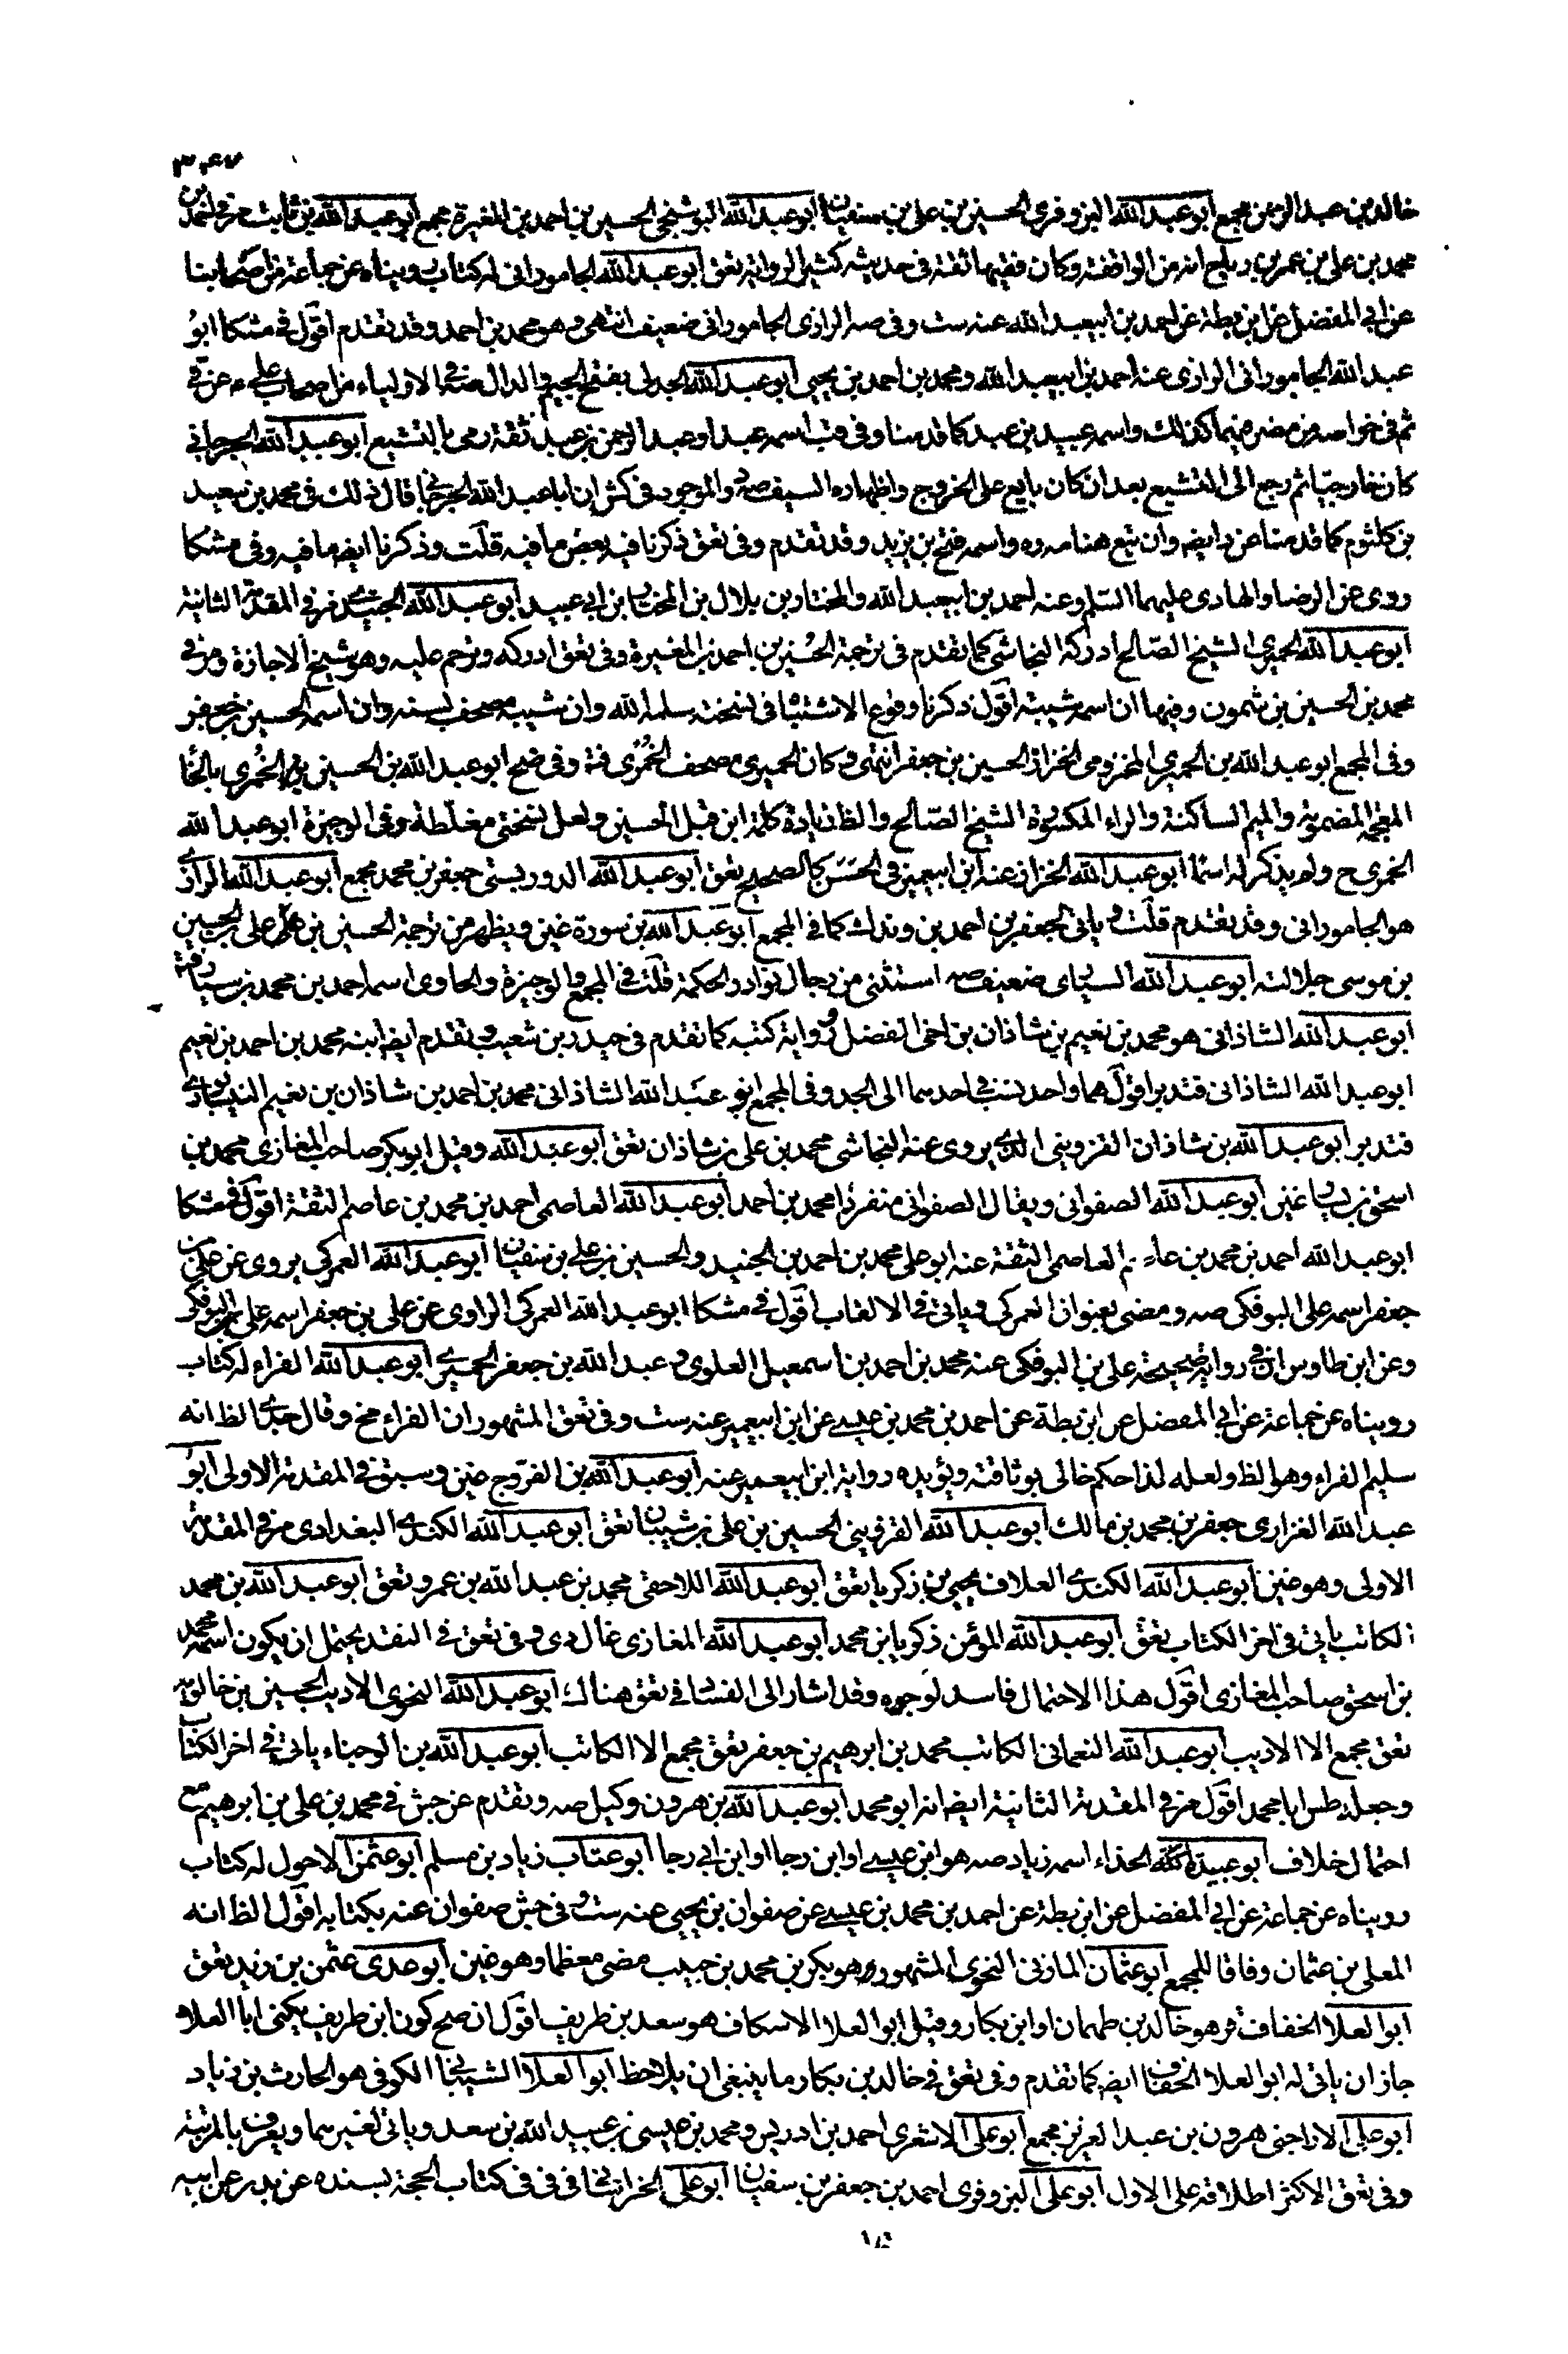 ٣٤٧
خالد بن عبد الرحمن مجمع ابو عبد الله البزوفرى الحسين بن على بن سفيان ابو عبد الله البوشنجى الحسين بن احمد بن المغيرة مجمع ابو عبد الله بن ثابت
محمد بن على بن عمر بن رباح انه من الواقفة وكان فقيها ثقة فى حديثه كثير الرواية تعق ابو عبد الله الجامورانى له كتاب رويناه عن جماعة من اصحابنا
عن ابى المفضل عن ابن بطة عن احمد بن ابيعبد الله عنه ست وفى صه الرازى الجامورانى ضعيف انتهى وهو محمد بن احمد وقد تقدم اقول فى مشكا ابو
عبد الله الجامورانى الرازى عنه احمد بن ابيعبد الله ومحمد بن احمد بن يحيى ابو عبد الله الجدلى بفتح الجيم والدال صه فى الاولياء من اصحاب على ع عن قى
ثم فى خواصه من مضر صه كذلك واسمه عبيد بن عبد كما قدمنا وفى قب اسمه عبد او عبد الرحمن بن عبد ثقة رمى بالتشيع ابو عبد الله الجرجانى
كان خارجيا ثم رجع الى التشيع بعد ان كان بايع على الخروج واظهاره السيف صه والموجود فى كش ان ابا عبد الله الجرجانى قال ذلك فى محمد بن سعيد
بن كلثوم كما قدمنا عن د ايضه وان تبع هنا صه ده واسمه فتح بن يزيد وقد تقدم وفى تعق ذكرنا فيه بعض ما فيه قلت وذكرنا ايضه ما فيه وفى مشكا
روى عن الرضا والهادى عليهما السلم وعنه احمد بن ابيعبد الله والمختار بن بلال بن المختار بن ابى عبيد ابو عبد الله الجنيدى مر فى المقدمة الثانية
ابو عبد الله الحميرى الشيخ الصالح ادركه النجاشى كما تقدم فى ترجمة الحسين بن احمد بن المغيرة وفى تعق ادركه وترحم عليه وهو شيخ الاجازة ومر فى
محمد بن الحسين بن شمون وفيها ان اسمه شيبة اقول ذكرنا وقوع الاشتباه فى نسخته سلمه الله وان شيبه مصحف لسنه وان اسمه الحسين بن جعفر
وفى المجمع ابو عبد الله بن الحميرى المخزومى الخزاز الحسين بن جعفر انتهى وكان الحميرى مصحف الخمرى فتة وفى ضح ابو عبد الله بن الحسين بن الخمرى بالخا
المعجمة المضمومة والميم الساكنة والراء المكسورة الشيخ الصالح والظ زيادة كلمة ابن قبل الحسين ولعل نسختى مغلطة وفى الوجيزة ابو عبد الله
الخمرى ح ولم يذكر له اسما ابو عبد الله الخزاز عنه ابن ابيعمير فى الحسن كالصحيح تعق ابو عبد الله الدوريستى جعفر بن محمد مجمع ابو عبد الله الرازى
هو الجامورانى وقد تقدم قلت ويأتى لجعفر بن احمد بن وندك كما فى المجمع ابو عبد الله بن سورة غين ويظهر من ترجمة الحسين بن على بن الحسين
بن موسى جلالته ابو عبد الله السيارى ضعيف صه استثنى من رجال نوادر الحكمة قلت فى المجمع والوجيزة والحاوى اسمه احمد بن محمد بن سيار فتة
ابو عبد الله الشاذانى هو محمد بن نعيم بن شاذان بن اخى الفضل وراوية كتبه كما تقدم فى حيدر بن شعيب وتقدم ايضه ابنه محمد بن احمد بن نعيم
ابو عبد الله الشاذانى فتدبر اقول هما واحد نسب فى احدهما الى الجد وفى المجمع ابو عبد الله الشاذانى محمد بن احمد بن شاذان بن نعيم النيسابورى
فتدبر ابو عبد الله بن شاذان القزوينى الذى يروى عنه النجاشى محمد بن على بن شاذان تعق ابو عبد الله وقيل ابو بكر صاحب المغازى محمد بن
اسحق بن يسار غين ابو عبد الله الصفوانى ويقال الصفوانى منفردا محمد بن احمد ابو عبد الله العاصمى احمد بن محمد بن عاصم الثقة اقول فى مشكا
ابو عبد الله احمد بن محمد بن عاصم العاصمى الثقة عنه ابو على محمد بن احمد بن الجنيد والحسين بن على بن سفيان ابو عبد الله العمركى يروى عن على بن
جعفر اسمه على البوفكى صه ومضى بعنوان العمركى ويأتى فى الالقاب اقول فى مشكا ابو عبد الله العمركى الراوى عن على بن جعفر اسمه على البوفكى
وعن ابن طاوس ان فى رواية صحيحة على بن البوفكى عنه محمد بن احمد بن اسمعيل العلوى وعبد الله بن جعفر الحميرى ابو عبد الله الفراء له كتاب
رويناه عن جماعة عن ابى المفضل عن ابن بطة عن احمد بن محمد بن عيسى عن ابن ابيعمير عنه ست وفى تعق المشهور ان الفراء مخ وقال جدى الظ انه
سليم الفراء وهو الظ ولعله لذا حكم خالى بوثاقته ويؤيده رواية ابن ابيعمير عنه ابو عبد الله بن الفروج ضين وسبق فى المقدمة الاولى ابو
عبد الله الفزارى جعفر بن محمد بن مالك ابو عبد الله القزوينى الحسين بن على بن شيبان تعق ابو عبد الله الكندى البغدادى مر فى المقدمة
الاولى وهو ضين ابو عبد الله الكندى العلاف يحيى بن زكريا تعق ابو عبد الله اللاحقى محمد بن عبد الله بن عمرو تعق ابو عبد الله بن محمد
الكاتب يأتى فى اخر الكتاب تعق ابو عبد الله المؤمن زكريا بن محمد ابو عبد الله المغازى غال دى وفى تعق فى النقد يحتمل ان يكون اسمه محمد
بن اسحق صاحب المغازى اقول هذا الاحتمال فاسد لوجوه وقد اشار الى الفساد فى تعق هناك ابو عبد الله النحوى الاديب الحسين بن خالويه
تعق مجمع الا الاديب ابو عبد الله النعمانى الكاتب محمد بن ابرهيم بن جعفر تعق مجمع الا الكاتب ابو عبد الله بن الوجناء يأتى فى اخر الكتاب
وجعله طس ابا محمد اقول مر فى المقدمة الثانية ايضه انه ابو محمد ابو عبد الله بن هرون وكيل صه وتقدم عن جش فى محمد بن على بن ابرهيم مع
احتمال خلاف ابو عبيدة الحذاء اسمه زياد صه هو ابن عيسى او ابن رجا او ابن ابى رجا ابو عتاب زياد بن مسلم ابو عثمن الاحول له كتاب
رويناه عن جماعة عن ابى المفضل عن ابن بطة عن احمد بن محمد بن عيسى عن صفوان بن يحيى عنه ست وفى جش صفوان عنه بكتابه اقول الظ انه
المعلى بن عثمان وفاقا للمجمع ابو عثمان المازنى النحوى المشهور وهو بكر بن محمد بن حبيب مضى معظما وهو ضين ابو عدى عثمن بن زيد تعق
ابو العلا الخفاف قر هو خالد بن طهمان او ابن بكار وقيل ابو العلا الاسكاف هو سعد بن طريف اقول ان صح كون ابن طريف يكنى ابا العلا
جاز ان يأتى له ابو العلا الخفاف ايضه كما تقدم وفى تعق فى خالد بن بكار ما ينبغى ان يلاحظ ابو العلا الشيبانى الكوفى هو الحارث بن زياد
ابو على الاراجنى هرون بن عبد العزيز مجمع ابو على الاشعرى احمد بن ادريس ومحمد بن عيسى بن عبيد الله بن سعد ويأتى لغيرهما ويعرف بالمرتبة
وفى تعق الاكثر اطلاقه على الاول ابو على البزوفرى احمد بن جعفر بن سفيان ابو على الخراسانى فى فى كتاب الحجة بسنده عن بدر عن ابيه